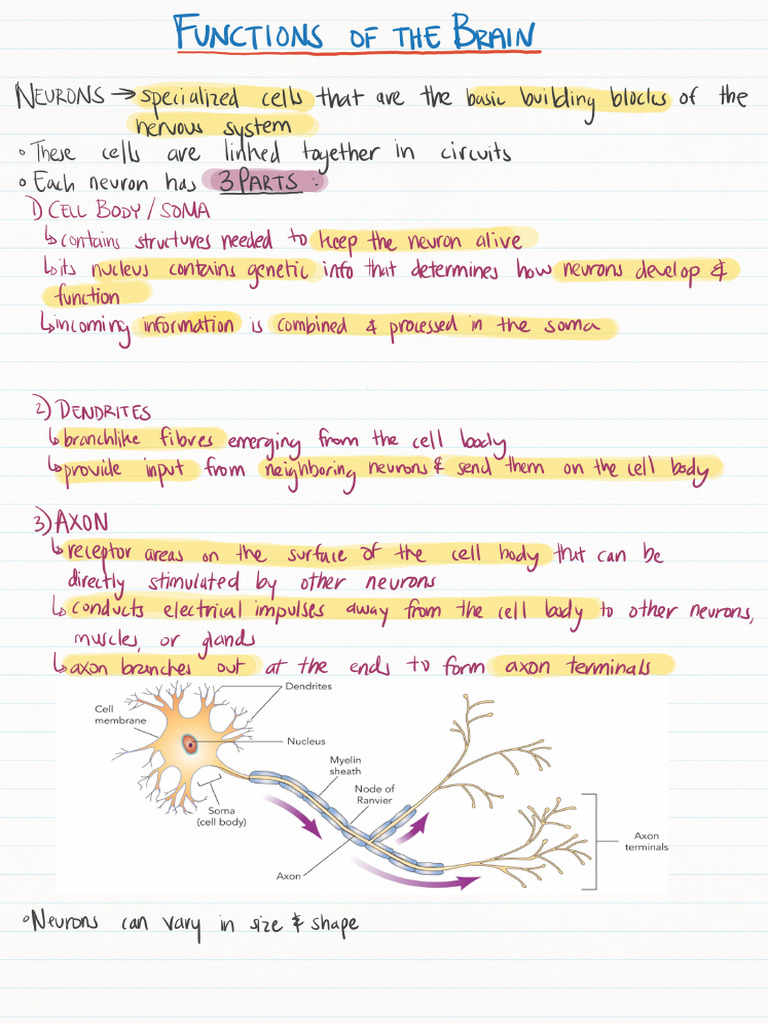 FUNCTIONS OF THE BRAIN
NEURONS → specialized cells that are the basic building blocks of the
nervous system
◦ These cells are linked together in circuits
◦ Each neuron has 3 PARTS :
1) CELL BODY / SOMA
↳ contains structures needed to keep the neuron alive
↳ its nucleus contains genetic info that determines how neurons develop &
function
↳ incoming information is combined & processed in the soma
2) DENDRITES
↳ branchlike fibres emerging from the cell body
↳ provide input from neighboring neurons & send them on the cell body
3) AXON
↳ receptor areas on the surface of the cell body that can be
directly stimulated by other neurons
↳ conducts electrical impulses away from the cell body to other neurons,
muscles, or glands
↳ axon branches out at the ends to form axon terminals
Dendrites
Cell
membrane
Nucleus
Myelin
sheath
Node of
Ranvier
Soma
(cell body)
Axon
terminals
Axon
◦ Neurons can vary in size & shape